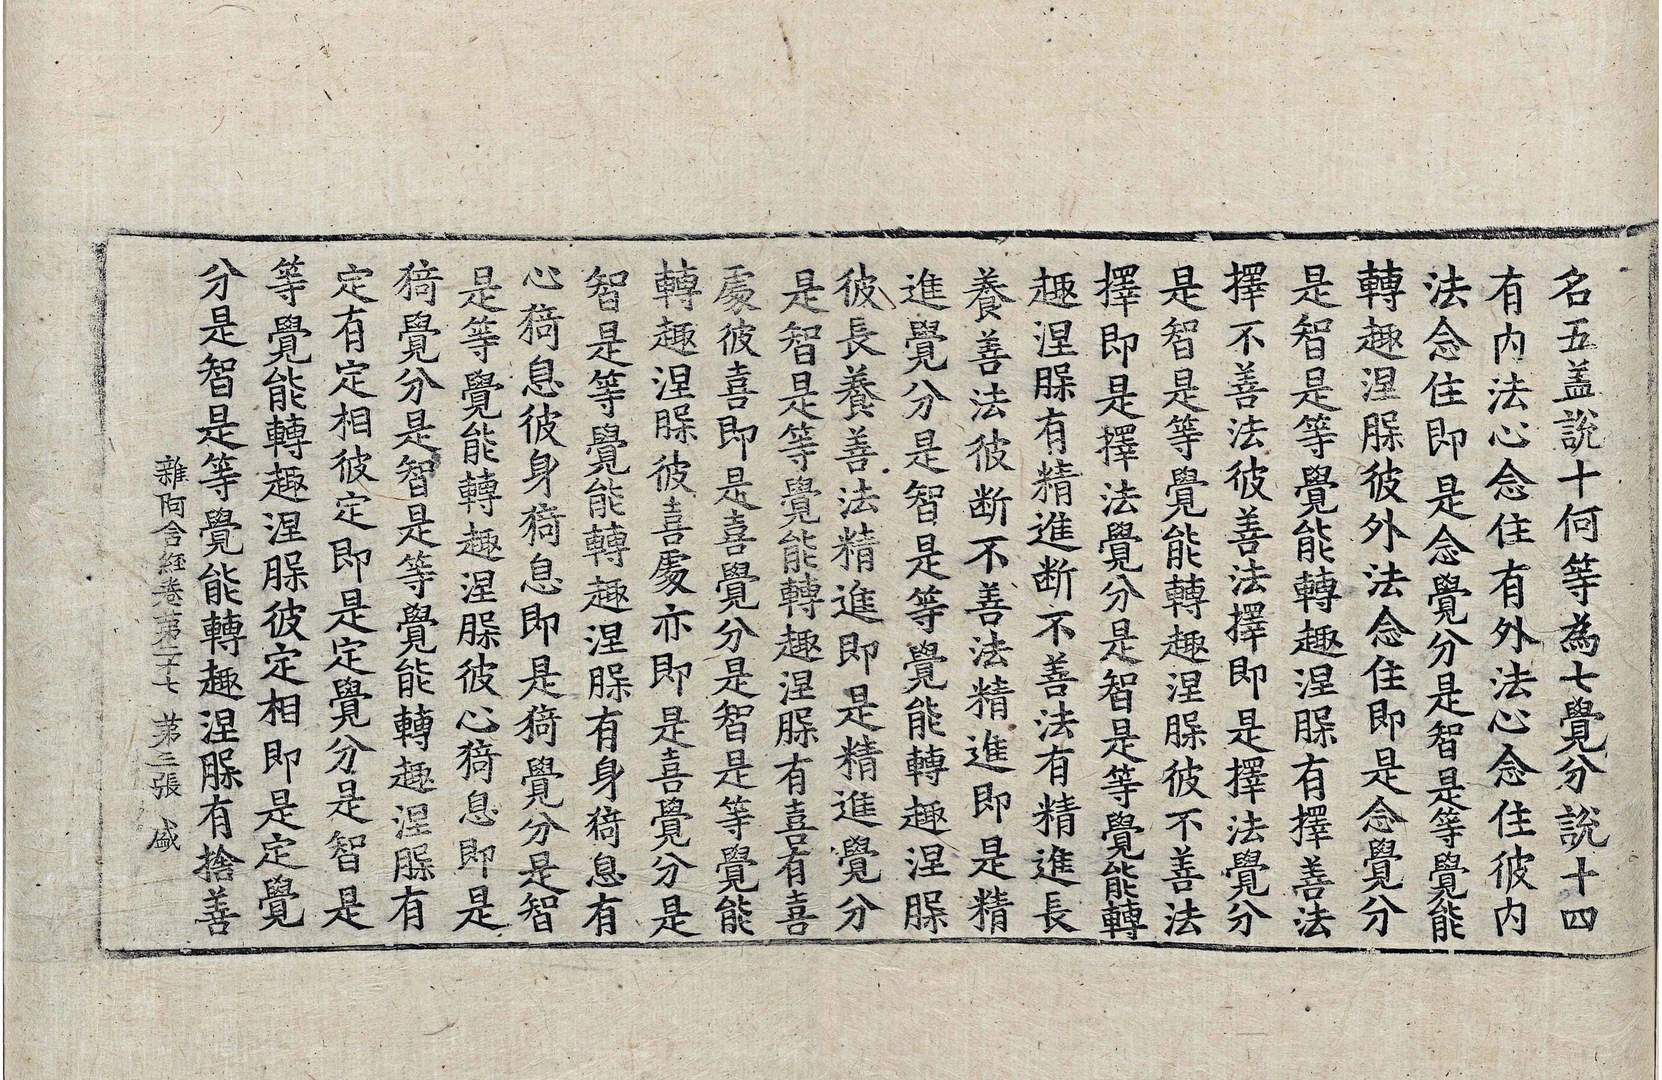 名五盖說十何等為七覺分說十四
有內法心念住有外法心念住彼內
法念住即是念覺分是智是等覺能
轉趣涅槃彼外法念住即是念覺分
是智是等覺能轉趣涅槃有擇善法
擇不善法彼善法擇即是擇法覺分
是智是等覺能轉趣涅槃彼不善法
擇即是擇法覺分是智是等覺能轉
趣涅槃有精進斷不善法有精進長
養善法彼断不善法精進即是精
進覺分是智是等覺能轉趣涅槃
彼長養善法精進即是精進覺分
是智是等覺能轉趣涅槃有喜有喜
處彼喜即是喜覺分是智是等覺能
轉趣涅槃彼喜處亦即是喜覺分是
智是等覺能轉趣涅槃有身猗息有
心猗息彼身猗息即是猗覺分是智
是等覺能轉趣涅槃彼心猗息即是
猗覺分是智是等覺能轉趣涅槃有
定有定相彼定即是定覺分是智是
等覺能轉趣涅槃彼定相即是定覺
分是智是等覺能轉趣涅槃有捨善
雜阿含経卷苐二十七 苐三張 盛